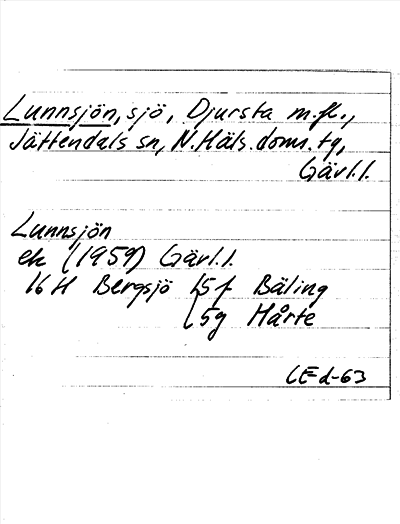 Lunnsjön, sjö, Djursta m.fl.,
Jättendals sn, N.Häls.doms.tg,
Gävl.l.
Lunnsjön
ek (1959) Gävl.l.
16 H Bergsjö 5f Bäling
5g Hårte
CEd-63